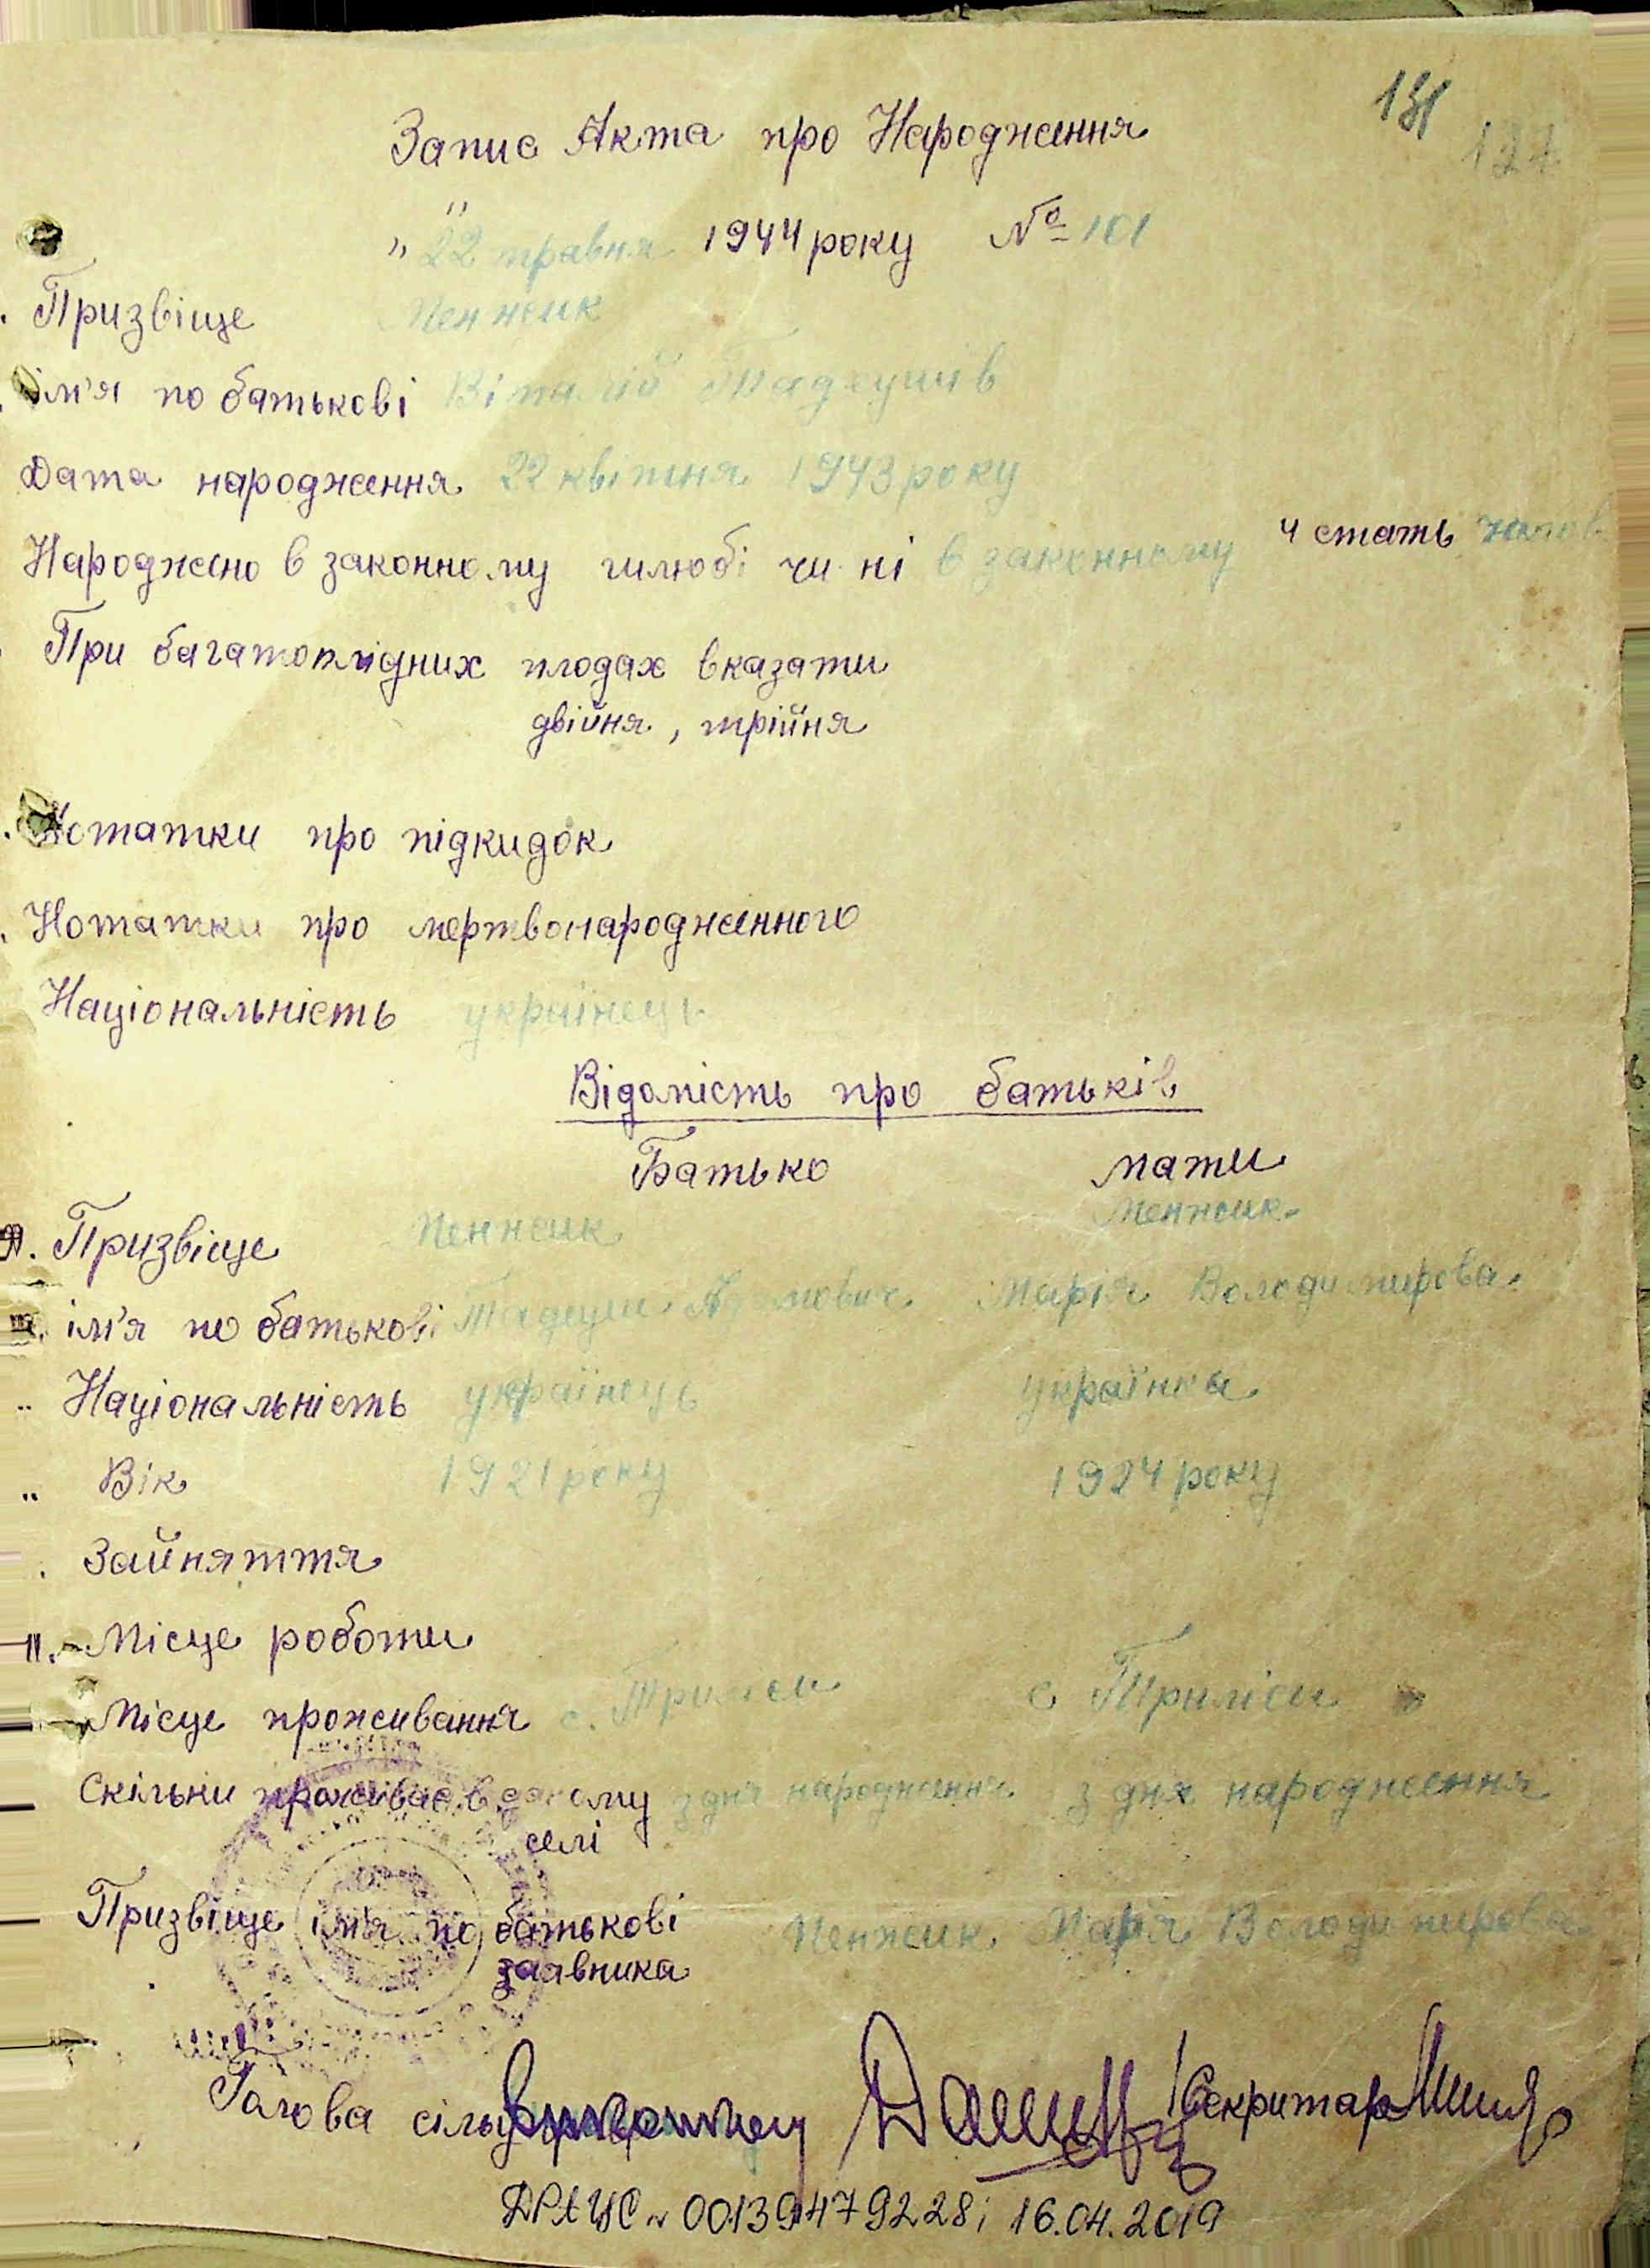 131
Запис Акта про Народження
" 22 травня " 1944 року № 101
Призвіще Пенжик
ім'я по батькові Віталій Тадеушів
Дата народження 22 квітня 1943 року
ч стать чолов
Народжено в законному шлюбі чи ні в законному
При багатоплідних плодах вказати
двійня, трійня
Нотатки про підкидок
Нотатки про мертвонародженного
Національність українець
Відомість про батьків
Батько мати
Призвіще Пенжик Пенжик
ім'я по батькові Тадеуш Марія Володимирова
Національність українець українка
Вік 1921 року 1924 року
Зайняття
11. Місце роботи
Місце проживання с. Триліси с Триліси
Скільки проживає в даному з дня народження з дня народження
селі
Призвіще ім'я по батькові Пенжик Марія Володимирова
заявника
Голова сільуправи Секритар
ДРАЦС № 00139479228; 16.04.2019